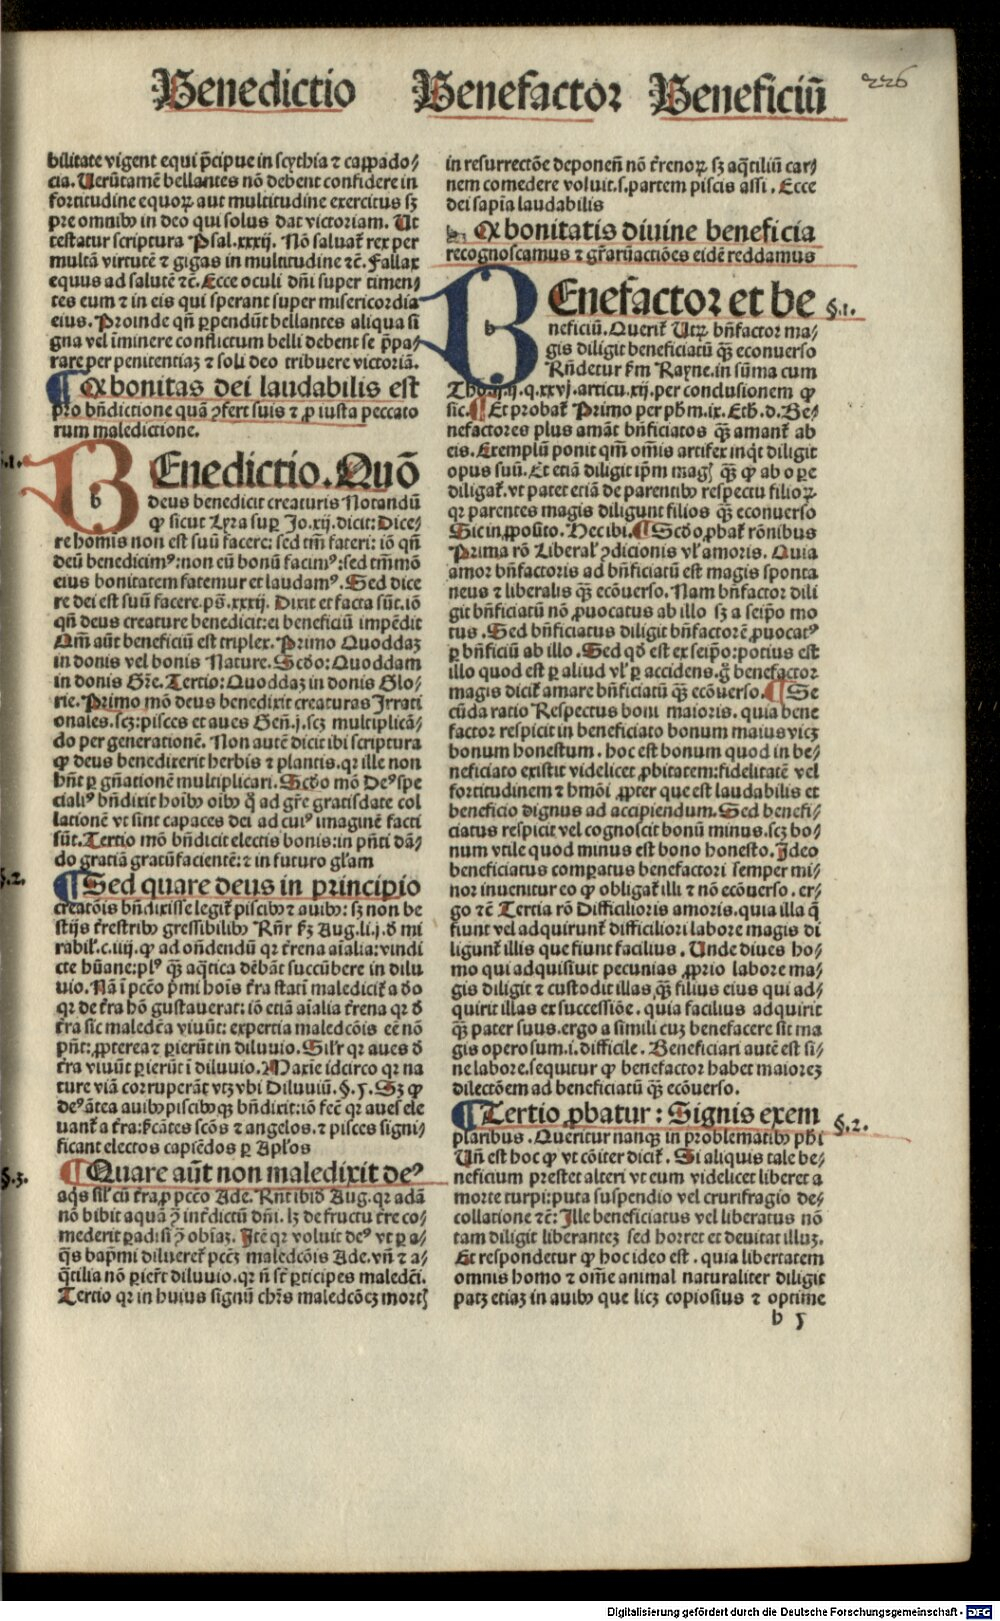 Benedictio Benefactor Beneficiū
226
bilitate vigent equi p̄cipue in scythia ⁊ cappado⸗
cia. Uerūtamē bellantes nō debent confidere in
fortitudine equoꝝ aut multitudine exercitus sꝫ
pre omnibꝰ in deo qui solus dat victoriam. Ut
testatur scriptura Psal.xxxij. Nō saluat̄ rex per
multā virtutē ⁊ gigas in multitudine ⁊c̄. Fallax
equus ad salutē ⁊c̄. Ecce oculi dn̄i super timen⸗
tes eum ⁊ in eis qui sperant super misericordia
eius. Proinde qn̄ ꝑpendūt bellantes aliqua si
gna vel īminere conflictum belli debent se p̄pa⸗
rare per penitentiaꝫ ⁊ soli deo tribuere victoriā.
¶ Qꝙ bonitas dei laudabilis est
pro bn̄dictione quā ꝯfert suis ⁊ ꝓ iusta peccato
rum maledictione.
§.1.
b
BEnedictio. Quō
deus benedicit creaturis Notandū
ꝙ sicut Lyra suꝑ Jo.xij. dicit: Dice⸗
re homīs non est suū facere: sed tm̄ fateri: iō qn̄
deū benedicimꝰ: non eū bonū facimꝰ: sed tm̄mō
eius bonitatem fatemur et laudamꝰ. Sed dice
re dei est suū facere. ps̄.xxxij. Dixit et facta sūt. iō
qn̄ deus creature benedicit: ei beneficiū impēdit
Qm̄ aūt beneficiū est triplex. Primo Quoddaꝫ
in donis vel bonis Nature. Scd̄o: Quoddam
in donis Gr̄e. Tertio: Quoddaꝫ in donis Glo⸗
rie. Primo mō deus benedixit creaturas Irrati
onales. scꝫ: pisces et aues Gen̄.j. scꝫ multiplicā⸗
do per generationē. Non autē dicit ibi scriptura
ꝙ deus benedixerit herbis ⁊ plantis. qr ille non
hn̄t ꝑ gn̄ationē multiplicari. Scd̄o mō Deꝰ spe
cialiꝰ bn̄dixit hoībꝰ oībꝰ q̄ ad gr̄e gratisdate col
lationē vt sint capaces dei ad cuiꝰ imaginē facti
sūt. Tertio mō bn̄dicit electis bonis: in pn̄ti dā⸗
do gratiā gratūfacientē: ⁊ in futuro gl̄am
§.2.
¶ Sed quare deus in principio
creatōis bn̄dixisse legit̄ piscibꝰ ⁊ auibꝰ: sꝫ non be
stijs t̄restribꝰ gressibilibꝰ Rn̄r ẜꝫ Aug. li.j. đ mi
rabil̄.c.iiij. ꝙ ad on̄dendū qr t̄rena aīalia: vindi
cte hūane: plꝰ q̄ꝫ aq̄tica dēbāt succūbere in dilu
uio. Nā ī pcc̄o p̄mi hoīs t̄ra statī maledicit̄ a dō
qr de t̄ra hō gustauerat: iō etiā aīalia t̄rena qr đ
t̄ra sic maledc̄a viuūt: expertia maledcōis eē nō
pn̄t: ꝓpterea ⁊ ꝑierūt in diluuio. Sil̄r qr aues đ
t̄ra viuūt ꝑierūt ī diluuio. Maxie idcirco qr na
ture viā corruperāt vtꝫ vbi Diluuiū. §.5. Sꝫ ꝙ
deꝰ ātea auibꝰ piscibꝰ qꝫ bn̄dixit: iō fec̄ qr aues ele
uant̄ a t̄ra: ẜcātes scōs ⁊ angelos. ⁊ pisces signi⸗
ficant electos capiēdos ꝑ Apl̄os
§.3.
¶ Quare aūt non maledixit deꝰ
aq̄s sil̄ cū t̄ra, ꝓ pcc̄o Ade. Rn̄t ibid̄ Aug. qr adā
nō bibit aquā ꝯ̄ int̄dictū dn̄i. lꝫ de fructu t̄re co⸗
mederit ꝑadisi ꝯ̄ ob̄iaꝫ. Itē qr voluit deꝰ vt ꝑ a⸗
q̄s bap̄mi dilueret̄ pcc̄ꝫ maledcōis Ade. vn̄ ⁊ a⸗
q̄tilia nō ꝑier̄t diluuio. qr n̄ st̄ ꝑticipes maledc̄i.
Tertio qr in huius signū chr̄s maledcōeꝫ mortꝭ
in resurrectōe deponen̄ nō t̄renoꝝ sꝫ aq̄tiliū car⸗
nem comedere voluit. s. partem piscis assi. Ecce
dei sapīa laudabilis
Qꝙ bonitatis diuine beneficia
recognoscamus ⁊ gr̄arūactiōes eidē reddamus
§.1.
b
BEnefactor et be
neficiū. Querit̄ Utꝝ bn̄factor ma⸗
gis diligit beneficiatū q̄ꝫ econuerso
Rn̄detur ẜm Rayne. in sūma cum
Tho.ij.ij.q.xxvj. articu.xij. per conclusionem ꝙ
sic. ¶ Et probat̄ Primo per ph̄m.ix. Eth. đ. Be⸗
nefactores plus amāt bn̄ficiatos q̄ꝫ amant̄ ab
eis. Exemplū ponit qm̄ om̄is artifex inq̄t diligit
opus suū. Et etiā diligit ip̄m magꝭ q̄ꝫ ꝙ ab oꝑe
diligat̄. vt patet etiā de parentibꝰ respectu filioꝝ
qr parentes magis diligunt filios q̄ꝫ econuerso
Sic in ꝓposito. Hec ibi. ¶ Scd̄o, ꝓbat̄ rōnibus
Prima rō Liberalꝭ ꝯdicionis vl̄ amoris. Quia
amor bn̄factoris ad bn̄ficiatū est magis sponta
neus ⁊ liberalis q̄ꝫ ecōuerso. Nam bn̄factor dili
git bn̄ficiatū nō ꝓuocatus ab illo sꝫ a seip̄o mo
tus. Sed bn̄ficiatus diligit bn̄factorē ꝓuocatꝰ
ꝑ bn̄ficiū ab illo. Sed qđ est ex seip̄o: potius est
illo quod est ꝑ aliud vl̄ ꝑ accidens. ḡ benefactor
magis dicit̄ amare bn̄ficiatū q̄ꝫ ecōuerso. ¶ Se
cūda ratio Respectus boni maioris. quia bene
factor respicit in beneficiato bonum maius vicꝫ
bonum honestum. hoc est bonum quod in be⸗
neficiato existit videlicet ꝓbitatem: fidelitatē vel
fortitudinem ⁊ hmōi ꝓpter que est laudabilis et
beneficio dignus ad accipiendum. Sed benefi⸗
ciatus respicit vel cognoscit bonū minus. scꝫ bo⸗
num vtile quod minus est bono honesto. Ideo
beneficiatus compatus benefactori semper mi⸗
nor inuenitur eo ꝙ obligat̄ illi ⁊ nō ecōuerso. er⸗
go ⁊c̄ Tertia rō Difficilioris amoris. quia illa q̄
fiunt vel adquirunt̄ difficiliori labore magis di
ligunt̄ illis que fiunt facilius. Unde diues ho⸗
mo qui adquisiuit pecunias ꝓprio labore ma⸗
gis diligit ⁊ custodit illas, q̄ꝫ filius eius qui ad⸗
quirit illas ex successiōe. quia facilius adquirit
q̄ꝫ pater suus. ergo a simili cuꝫ benefacere sit ma
gis operosum. i. difficile. Beneficiari autē est si⸗
ne labore. sequitur ꝙ benefactor habet maioreꝫ
dilectōem ad beneficiatū q̄ꝫ ecōuerso.
§.2.
¶ Tertio ꝓbatur: Signis exem
plaribus. Queritur nanqꝫ in problematibꝰ ph̄i
Un̄ est hoc ꝙ vt cōiter dicit̄. Si aliquis tale be⸗
neficium prestet alteri vt eum videlicet liberet a
morte turpi: puta suspendio vel crurifragio de⸗
collatione ⁊c̄: Ille beneficiatus vel liberatus nō
tam diligit liberanteꝫ sed horret et deuitat illuꝫ.
Et respondetur ꝙ hoc ideo est. quia libertatem
omnis homo ⁊ om̄e animal naturaliter diligit
patꝫ etiaꝫ in auibꝰ que licꝫ copiosius ⁊ optime
b 5
Digitalisierung gefördert durch die Deutsche Forschungsgemeinschaft - DFG